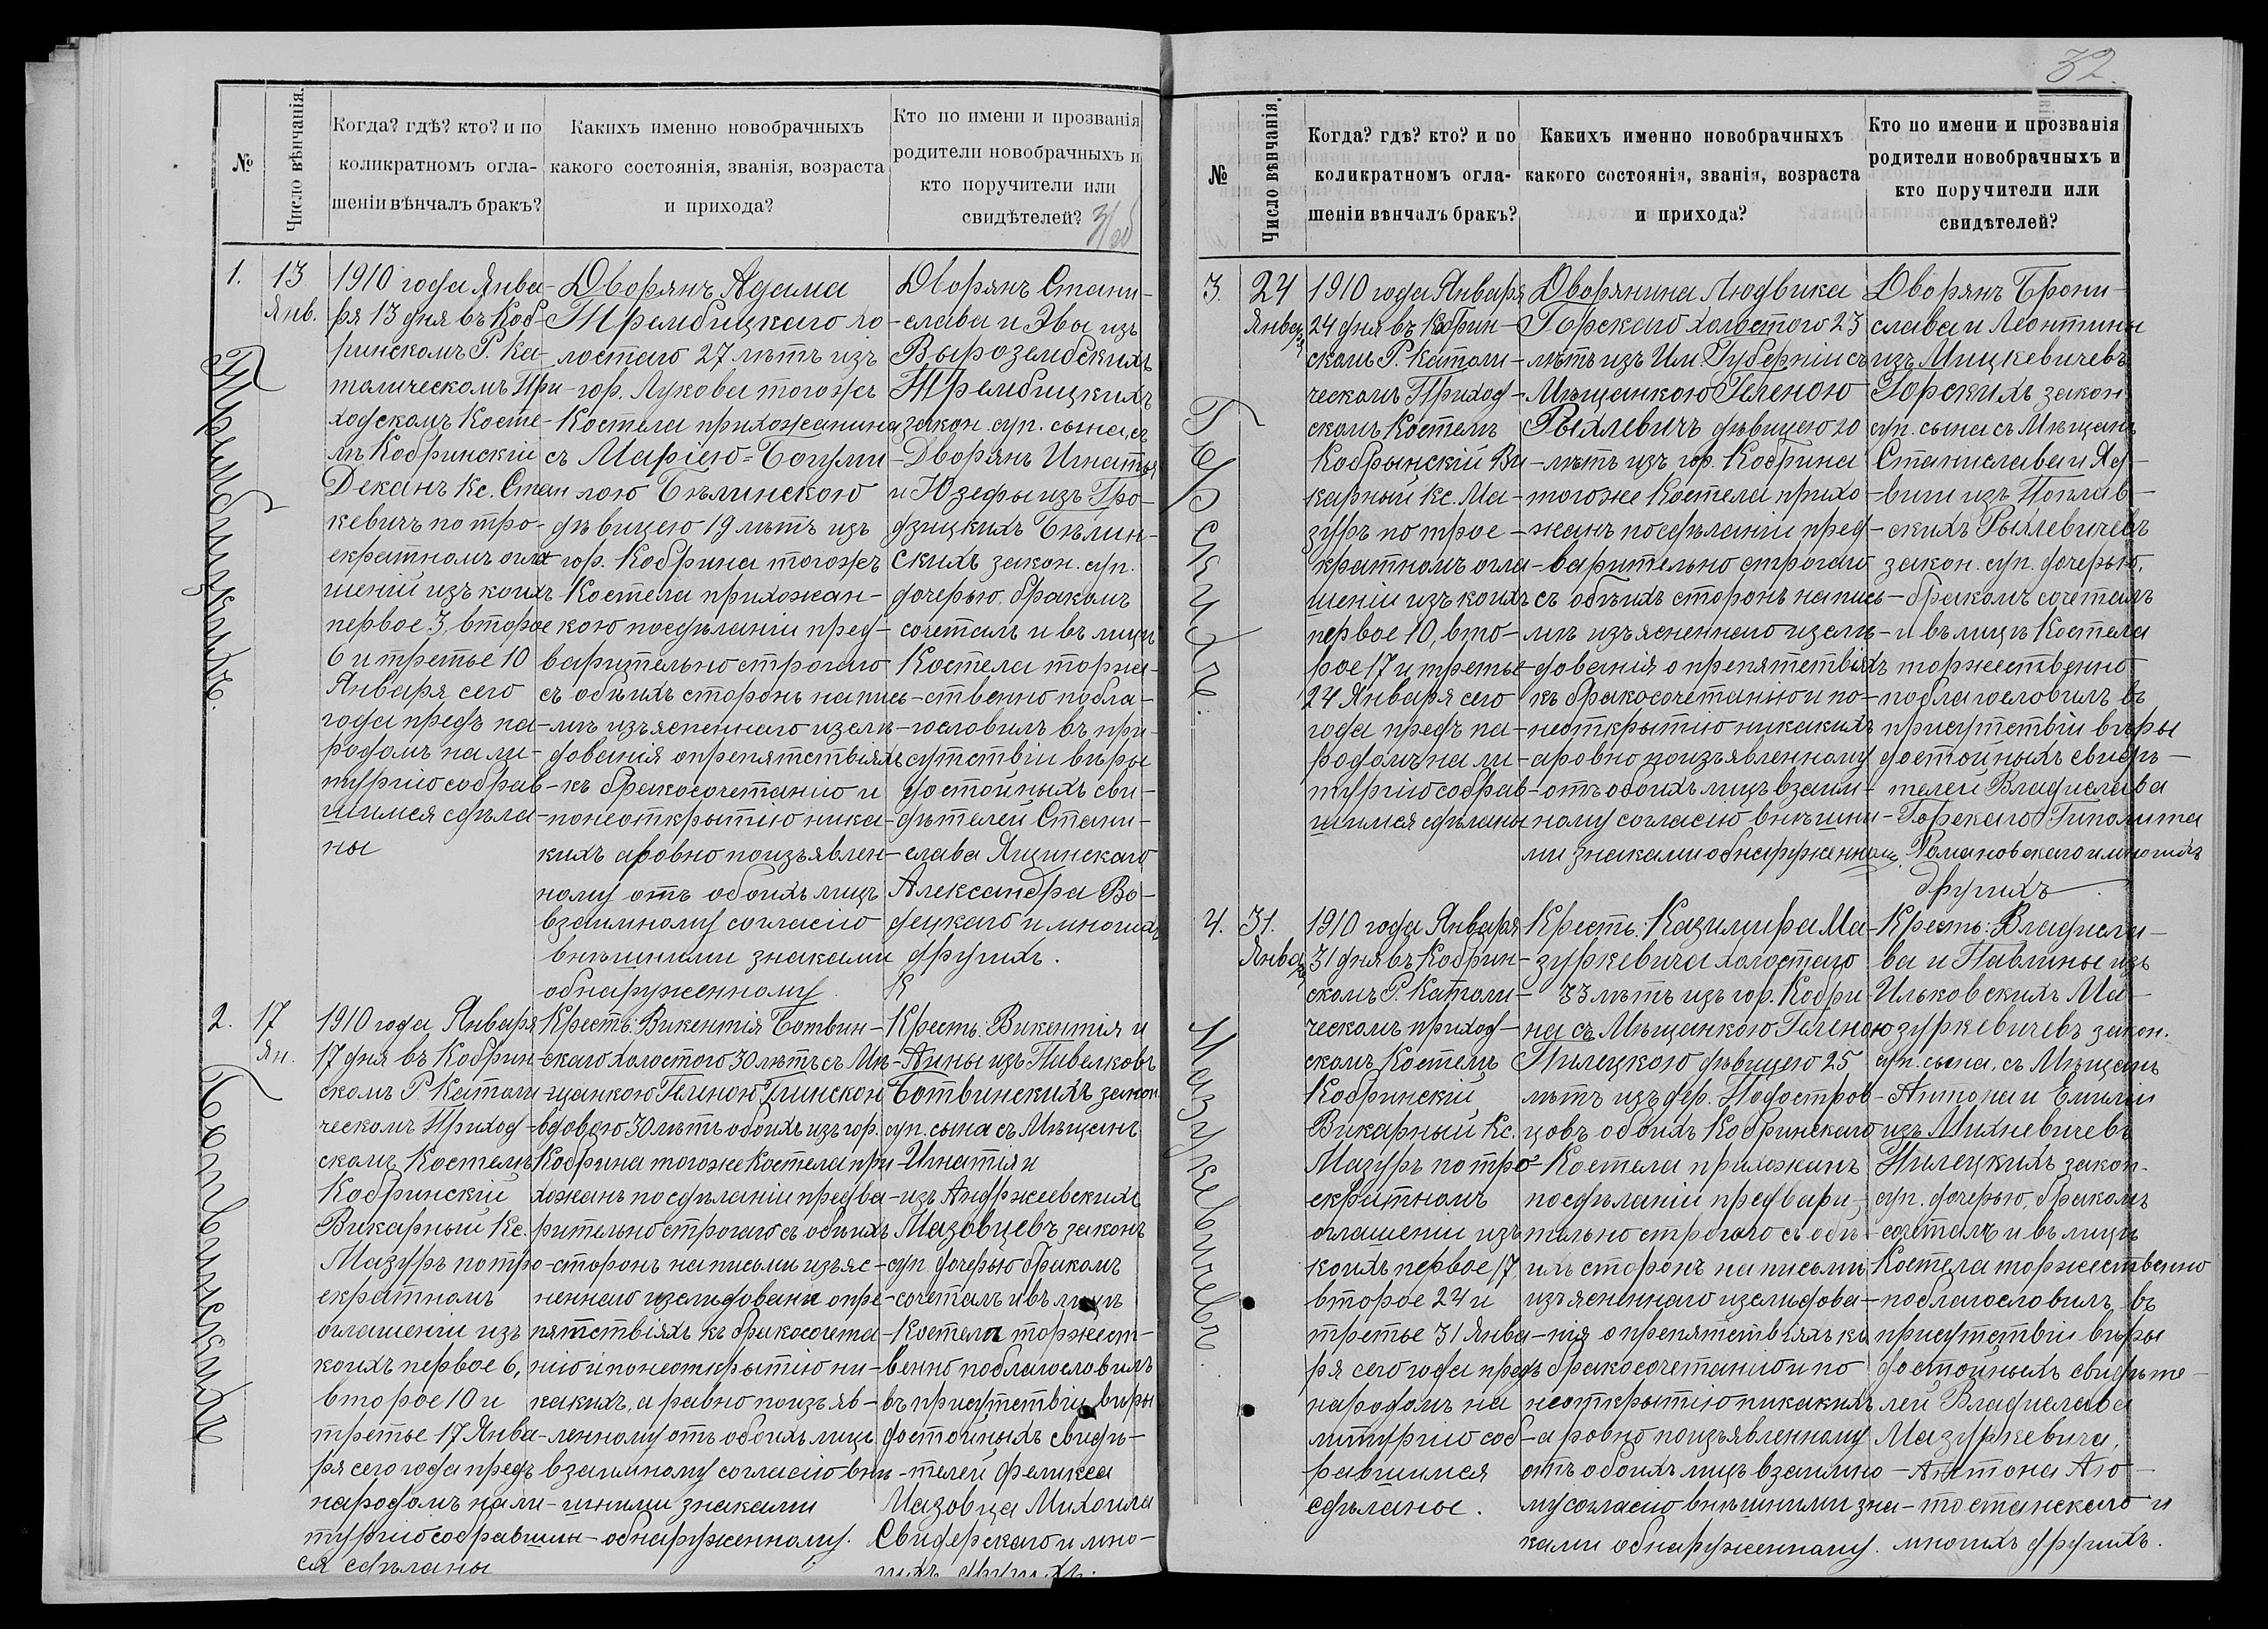 32.
№
Число вѣнчанія.
Когда? гдѣ? кто? и по
коликратномъ огла-
шеніи вѣнчалъ бракъ?
Какихъ именно новобрачныхъ
какого состоянія, званія, возраста
и прихода?
Кто по имени и прозванія
родители новобрачныхъ и
кто поручители или
свидѣтелей?
1.
13
Янв.
Трембицкихъ.
1910 года Янва-
ря 13 дня въ Коб-
ринскомъ Р. Ка-
толическомъ При-
ходскомъ Косте-
лѣ Кобринскій
Деканъ Кс. Стан
кевичъ по тро-
екратномъ огла
шеній изъ коихъ
первое 3, второе
6 и третье 10
Января сего
года предъ на-
родомъ на ли-
тургію собрав-
шимся сдѣла-
ны
Дворянъ Адама
Трембицкаго хо-
лостаго 27 лѣтъ изъ
гор. Лукова тогожъ
Костела прихожанина
съ Маріею-Богуми-
лою Бѣлинскою
дѣвицею 19 лѣтъ изъ
гор. Кобрина тогожъ
Костела прихожан-
кою посдѣланіи пред-
варительно строгаго
съ обѣихъ сторонъ на пись-
мѣ изъясненнаго изслѣ-
дованія о препятствіяхъ
къ бракосочетанію и
понеоткрытію ника-
кихъ аровно поизъявлен-
ному отъ обоихъ лицъ
взаимному согласію
внѣшними знаками
обнаруженному
Дворянъ Стани-
слава и Эвы изъ
Вырозембскихъ
Трембицкихъ
закон. суп. сына, съ
Дворянъ Игнатія
и Юзефы изъ Гро-
дзицкихъ Бѣлин-
скихъ закон. суп.
дочерью, бракомъ
сочеталъ и въ лицѣ
Костела торже-
ственно побла-
гословилъ въ при-
сутствіи вѣры
достойныхъ сви-
дѣтелей Стани-
слава Ящинскаго
Александра Во-
децкаго и многихъ
другихъ.
2.
17
Ян.
Ботвинскихъ
1910 года Января
17 дня въ Кобрин-
скомъ Р Католи-
ческомъ Приход-
скомъ Костелѣ
Кобринскій
Викарный Кс.
Мазуръ по тро-
екратномъ
оглашеніи изъ
коихъ первое 6,
второе 10 и
третье 17 Янва-
ря сего года предъ
народомъ на ли-
тургію собравшим-
ся сдѣланы
Кресть: Викентія Ботвин-
скаго холостого 30 лѣтъ съ Мѣ-
щанкою Геленою Глинской
вдовою 30 лѣтъ обоихъ изъ гор.
Кобрина тогоже Костела при-
хожанъ по сдѣланіи предва-
рительно строгаго съ обѣихъ
сторонъ на письмѣ изъяс-
неннаго изслѣдованія о пре-
пятствіяхъ къ бракосочета-
нію и понеоткрытію ни-
какихъ, а равно поизъяв-
ленному отъ обоихъ лицъ
взаимному согласію внѣ-
шними знаками
обнаруженному.
Кресть: Викентія и
Анны изъ Павелковъ
Ботвинскихъ закон.
суп. сына съ Мѣщанъ
Игнатія и
изъ Андржеевскихъ
Мазовцевъ законъ
суп. дочерью бракомъ
сочеталъ и въ лицѣ
Костела торжест-
венно поблагословилъ
въ присутствіи вѣры
достойныхъ свидѣ-
телей Феликса
Мазовца Михоила
Свидерскаго и мно-
гихъ другихъ.
№
Число вѣнчанія.
Когда? гдѣ? кто? и по
коликратномъ огла-
шеніи вѣнчалъ бракъ?
Какихъ именно новобрачныхъ
какого состоянія, званія, возраста
и прихода?
Кто по имени и прозванія
родители новобрачныхъ и
кто поручители или
свидѣтелей?
3.
24
Января
Горскихъ.
1910 года Января
24 дня въ Кобрин-
скомъ Р. Католи-
ческомъ Приход-
скомъ Костелѣ
Кобрынскій Ви-
карный Кс. Ма-
зуръ по трое-
кратномъ огла-
шеніи изъ коихъ
первое 10, вто-
рое 17 и третье
24 Января сего
года предъ на-
родомъ на ли-
тургію собрав-
шимся сдѣланы
Дворянина Людвика
Горскаго холостого 23
лѣтъ изъ Им. Губерніи съ
Мѣщанкою Геленою
Рыхлевичъ дѣвицею 20
лѣтъ изъ гор. Кобрина
тогоже Костела прихо-
жанъ посдѣланіи пред-
варительно строгаго
съ обѣихъ сторонъ на пись-
мѣ изъясненнаго изслѣ-
дованія о препятствіяхъ
къ бракосочетанію и по-
неоткрытію никакихъ
аровно поизъявленному
отъ обоихъ лицъ взаим-
ному согласію внѣшни-
ми знаками обнаруженному.
Дворянъ Брони-
слава и Леонтины
изъ Мицкевичевъ
Горскихъ закон.
суп. сына съ Мѣщанъ
Станислава и Яд-
виги изъ Поплав-
скихъ Рыхлевичевъ
закон. суп. дочерью,
бракомъ сочеталъ
и въ лицѣ Костела
торжественно
поблагословилъ въ
присутствіи вѣры
достойныхъ свидѣ-
телей Владислава
Горскаго Гиполита
Романовскаго и многихъ
другихъ.
4.
31.
Января
Мазуркевичевъ.
1910 года Января
31 дня въ Кобрин-
скомъ Р. Католи-
ческомъ приход-
скомъ Костелѣ
Кобринскій
Викарный Кс.
Мазуръ по тро-
екратномъ
оглашеніи изъ
коихъ первое 17,
второе 24 и
третье 31 Янва-
ря сего года предъ
народомъ на
литургію соб-
равшимся
сдѣланы.
Кресть: Казимира Ма-
зуркевича холостаго
33 лѣтъ изъ гор. Кобри-
на съ Мѣщанкою Геленою
Пилецкою дѣвицею 25
лѣтъ изъ дер. Подостров-
цовъ обоихъ Кобринскаго
Костела прихожанъ
посдѣланіи предвари-
тельно строгаго съ обѣ-
ихъ сторонъ на письмѣ
изъясненнаго изслѣдова-
нія о препятствіяхъ къ
бракосочетанію и по
неоткрытію никакихъ
а ровно поизъявленному
отъ обоихъ лицъ взаимно-
му согласію внѣшними зна-
ками обнаруженному.
Кресть: Владисла-
ва и Павлины изъ
Ильковскихъ Ма-
зуркевичевъ закон.
суп. сына, съ Мѣщанъ
Антона и Емиліи
изъ Михневичевъ
Пилецкихъ закон.
суп. дочерью, бракомъ
сочеталъ и въ лицѣ
Костела торжественно
поблагословилъ въ
присутствіи вѣры
достойныхъ свидѣте-
лей Владислава
Мазуркевича,
Антона Лю-
тостанскаго и
многихъ другихъ.